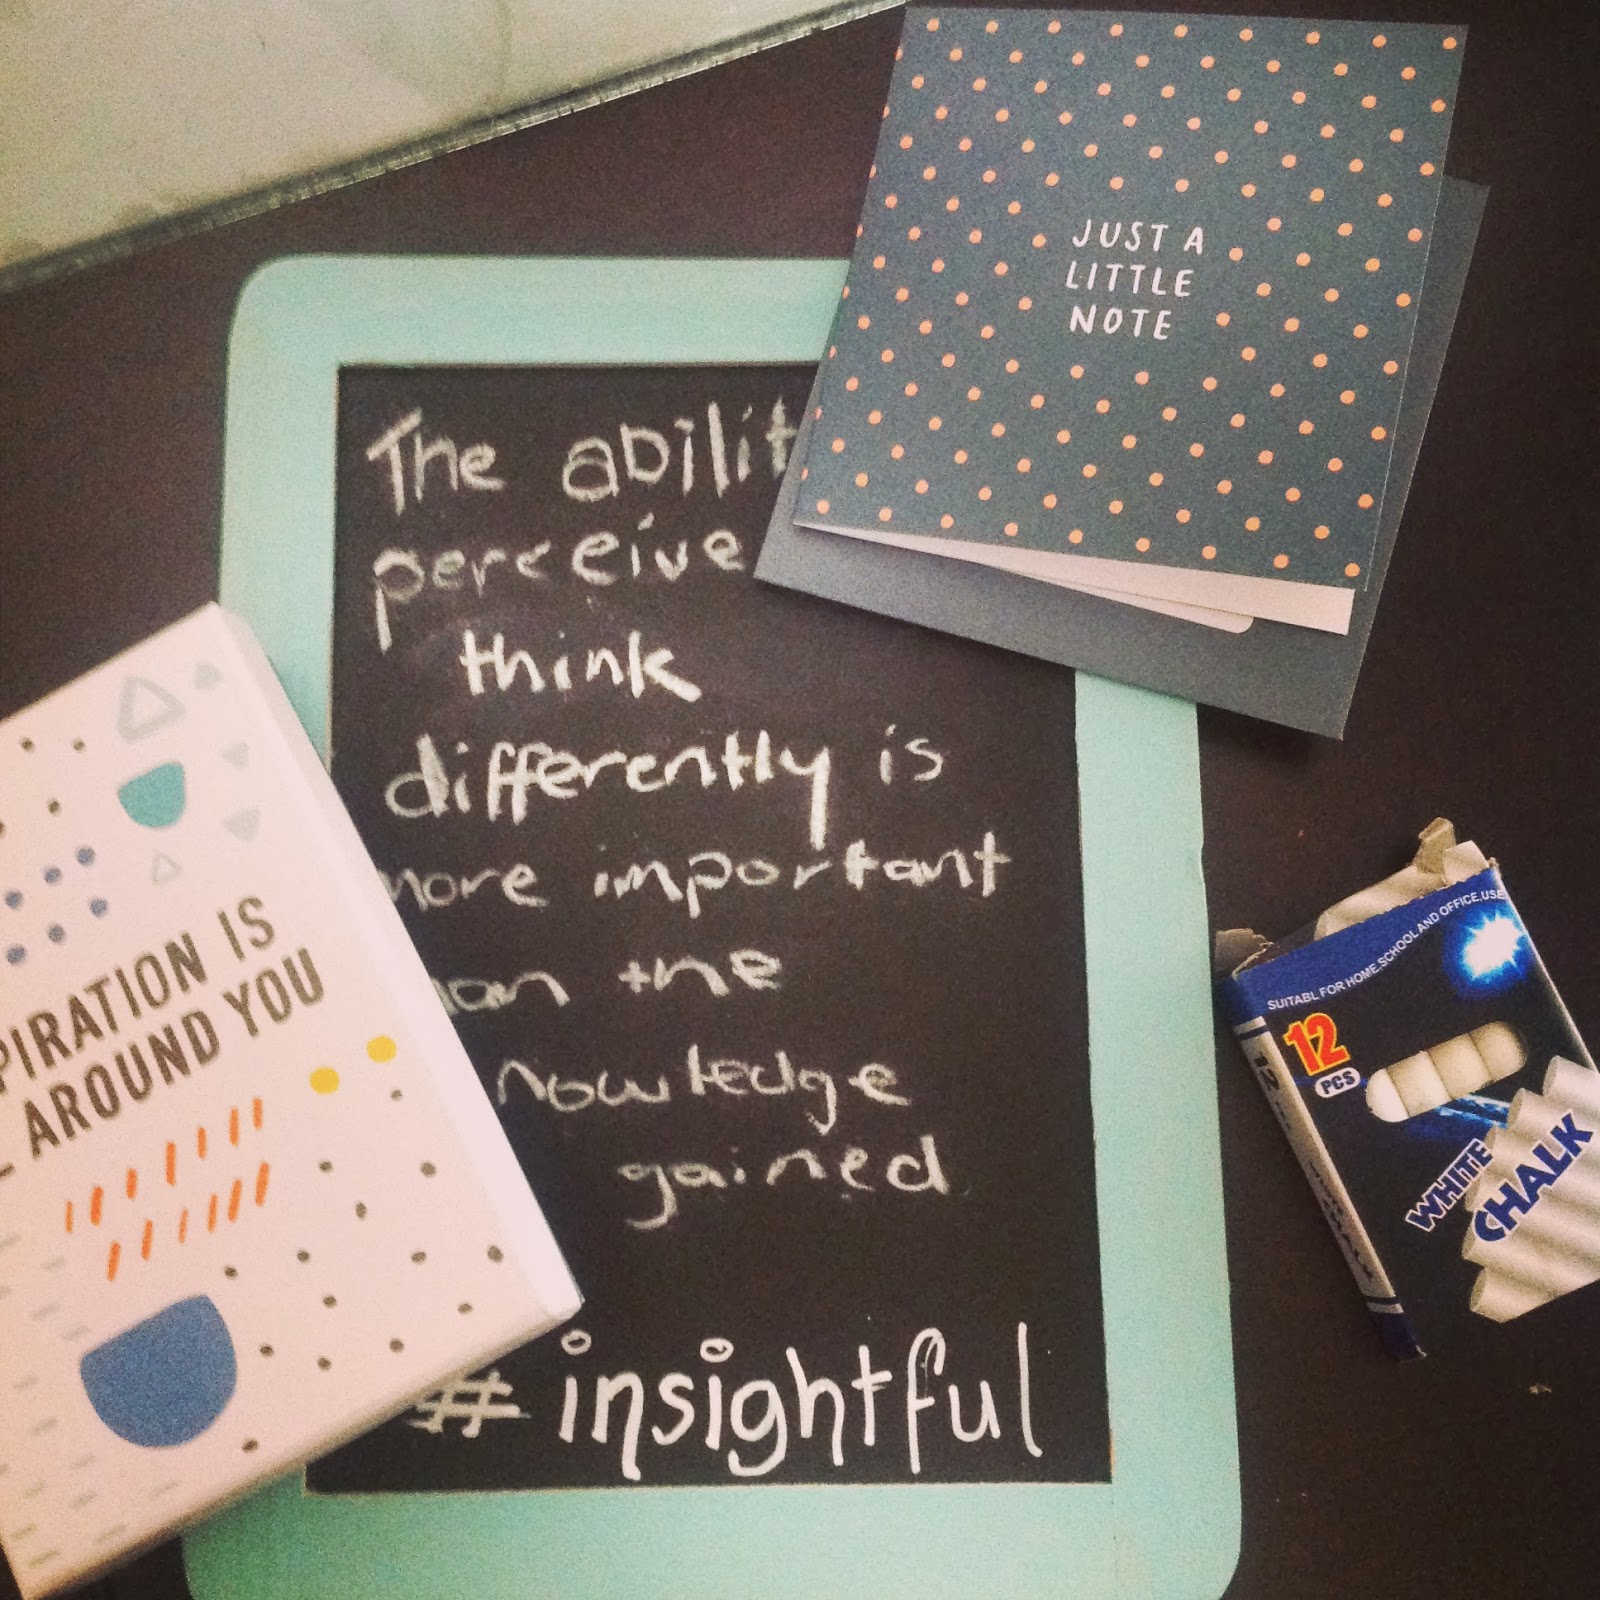 JUST A
LITTLE
NOTE
The abilit
perceive
think
differently is
more important
han the
nowledge
gained
# insightful
PIRATION IS
AROUND YOU
SUITABL FOR HOME,SCHOOL AND OFFICE,USE
12
PCS
WHITE
CHALK